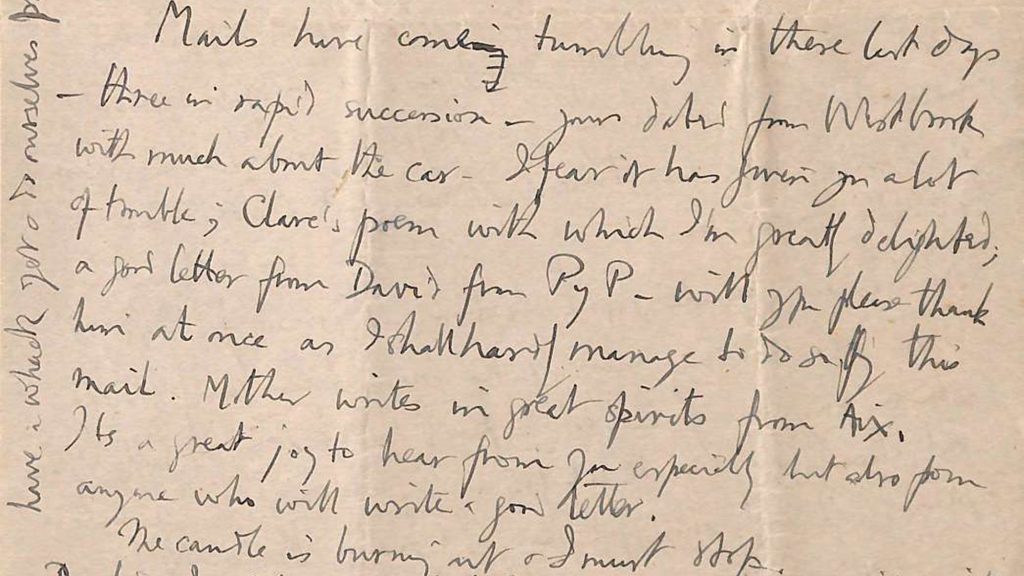 Mails have come tumbling in these last days
- three in rapid succession - yours dated from Westbrook
with much about the car - I fear it has given you a lot
of trouble; Clare's poem with which I'm greatly delighted;
a good letter from David from PyP - will you please thank
him at once as I shall hardly manage to do so by this
mail. Mother writes in great spirits from Aix.
Its a great joy to hear from you especially but also from
anyone who will write a good letter.
The candle is burning out & I must stop.
have a whack get a to ourselves